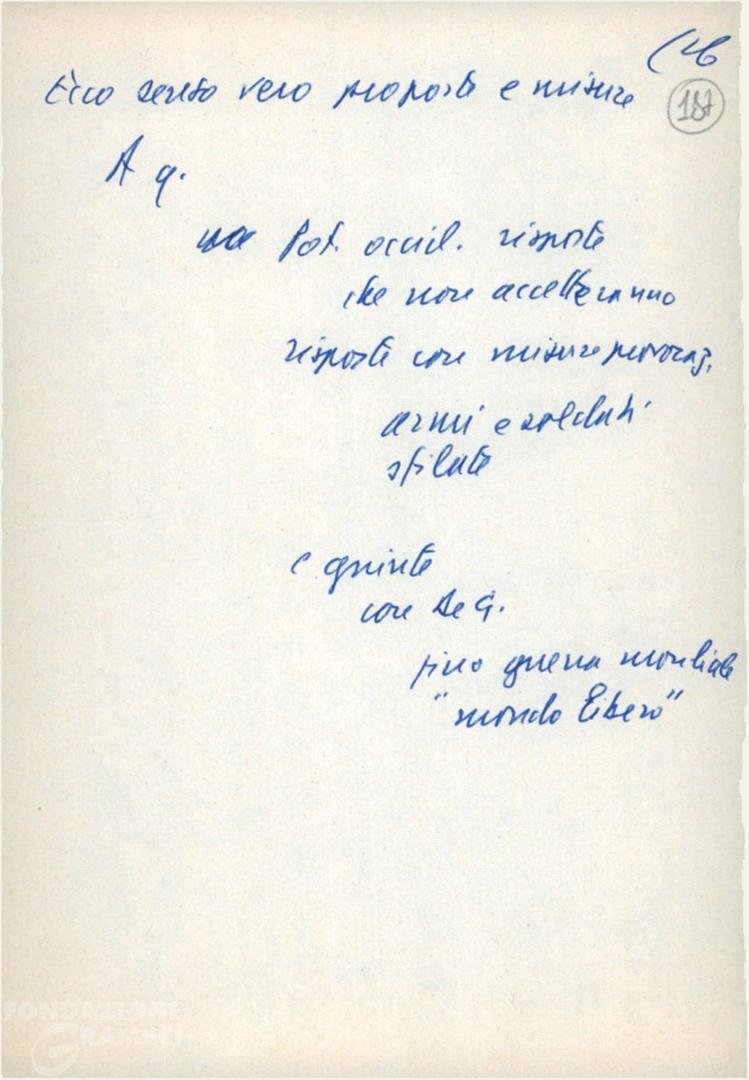 (26
187
Ecco senso vero proposte e misure
A q.
Pot. occid. risposte
che non accetteranno
risposte con misure provocaz.
armi e soldati
sfilate
e grinte
con De G.
fino guerra mondiale
"mondo libero"
FONDAZIONE
GRAMSCI